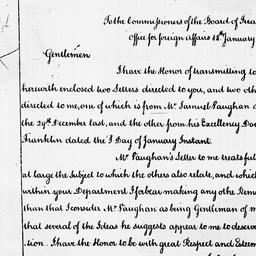 To the Commissioners of the Board of Trea
Office for foreign Affairs 12th January
Gentlemen
I have the Honor of transmitting to
herewith enclosed two Letters directed to you, and two oth
directed to me, one of which is from Mr. Samuel Vaughan d
the 29th December last, and the other from his Excellency Doc
Franklin dated the Day of January Instant.
Mr Vaughan's Letter to me treats ful
at large the Subject to which the others also relate, and which
within your Department I forbear making any othe Rema
than that I consider Mr Vaughan as being Gentleman of m
that several of the Ideas he suggests appear to me to deserve
tion. I have the Honor to be with great Respect and Esteem